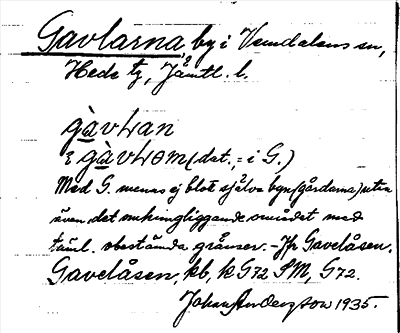 Gavlarna, by i Vemdalens sn,
Hede tg, Jämtl. l.
gàvḷan
i gàvḷom (dat., = i G.)
Med G. menas ej blott själva byn (gårdarna) utan
även det omkringliggande området med
täml. obestämda gränser. - Jfr Gavelåsen.
Gavelåsen, kb, k G72 SM, G72.
Johan Anderzson 1935.